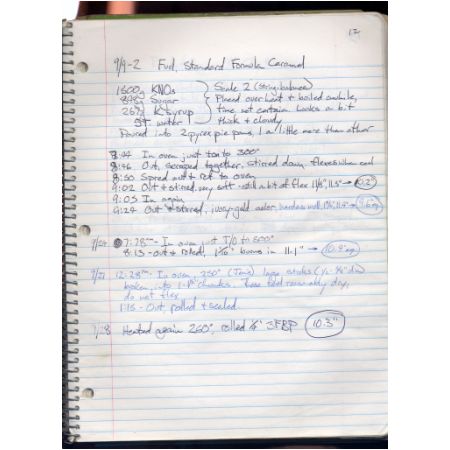 17
9/9-2 Fuel, Standard Formula Caramel
1600g KNO3
898g Sugar
267g K Syrup
water
Scale 2 (spring balance)
Placed over heat & boiled awhile,
time not certain. Looks a bit
thick & cloudy
Poured into 2 pyrex pie pans, 1 a little more than other
8:44 In oven, just ton to 300°
8:46 Out, scraped together, stirred down.
8:50 Spread out & ret to oven
9:02 Out & stirred, very soft - still a bit of flex 11.5" → 10.2"
9:05 In again
9:24 Out & stirred, juicy-gold color, hardens well,
7:28 - In oven just T/O to 300°
8:15 - out & rolled, burns in 11.1" →
12:28 - In oven, 250° large
broken into chunks - feed reasonably dry,
do not flex
1:15 - Out, rolled & sealed
7/28 Heated again 260°, rolled 10.3"